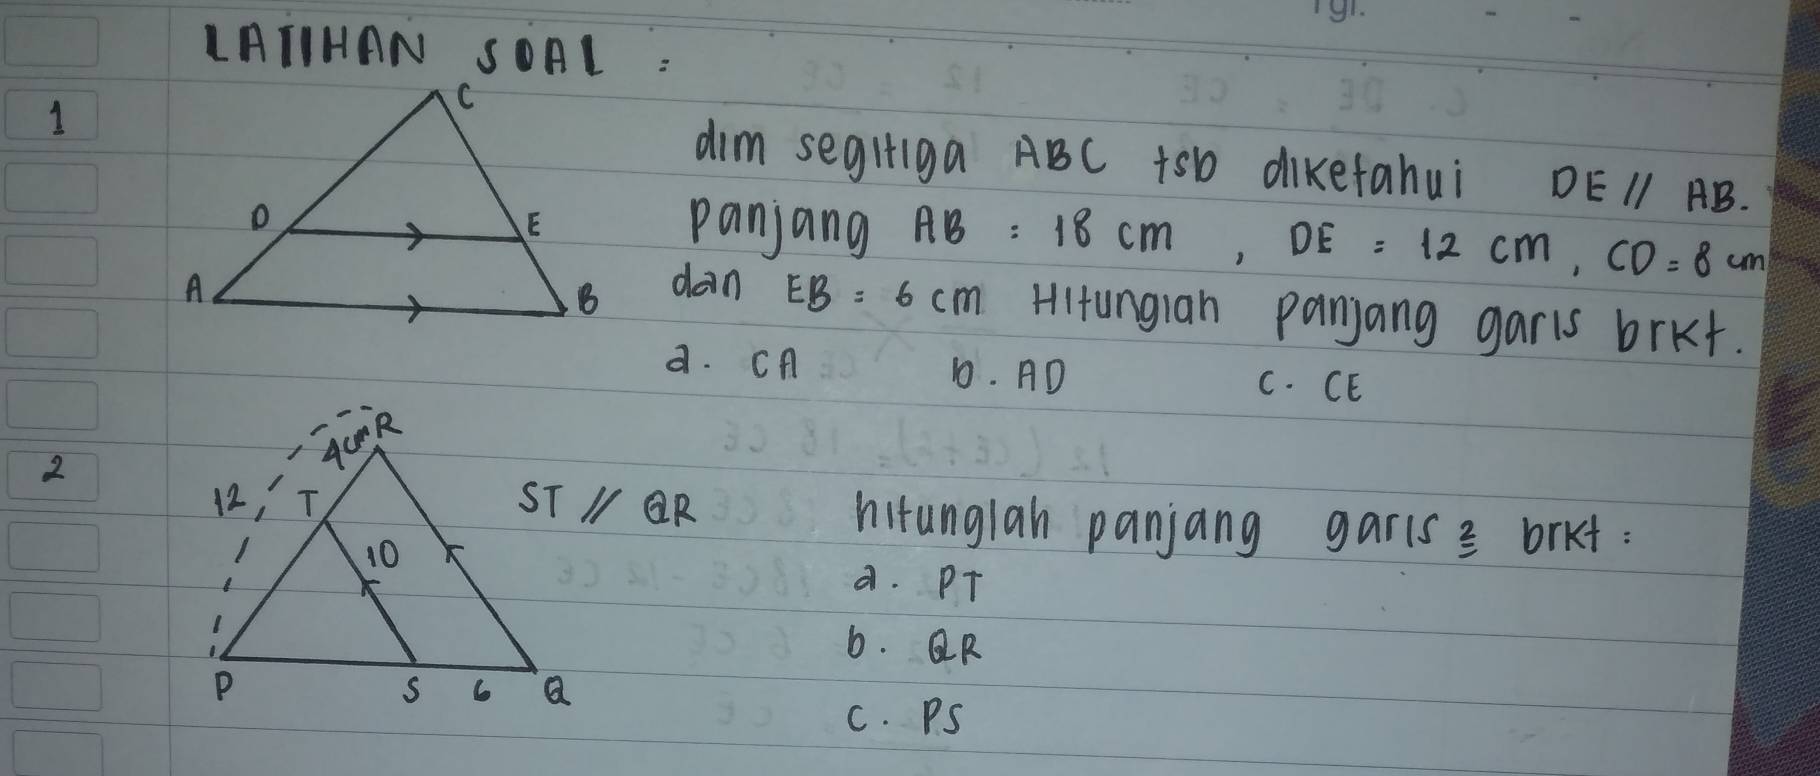 Tgl.
LATIHAN SOAL :
1
C
dlm segitiga ABC tsb diketahui DE // AB.
D E
panjang AB = 18 cm , DE = 12 cm, CD = 8 cm
A B
dan EB = 6 cm Hitunglah panjang garis brkt.
a. CA b. AD c. CE
2
4cm R
12 T
ST // QR hitunglah panjang garis 2 brkt :
10
a. PT
b. QR
P S 6 Q
c. PS